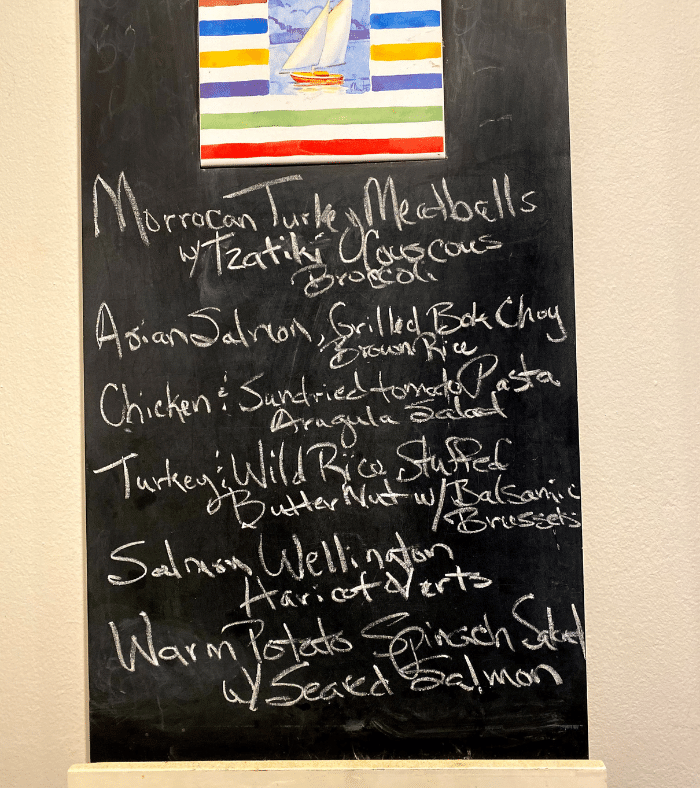 Morrocan Turkey Meatballs
w/ Tzatiki Couscous
Broccoli
Asian Salmon, Grilled Bok Choy
Brown Rice
Chicken & Sundried tomato Pasta
Arugula Salad
Turkey & Wild Rice Stuffed
ButterNut w/ Balsamic
Brussels
Salmon Wellington
Haricot Verts
Warm Potato Spinach Salad
w/ Seared Salmon